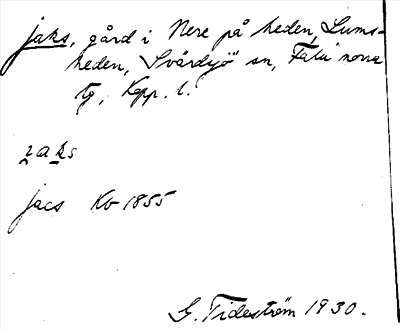 jaks, gård i Nere på heden, Lums-
heden, Svärdsjö sn, Falu norra
tg, Kopp. l.
jacs Kb 1855
G. Tideström 1930.